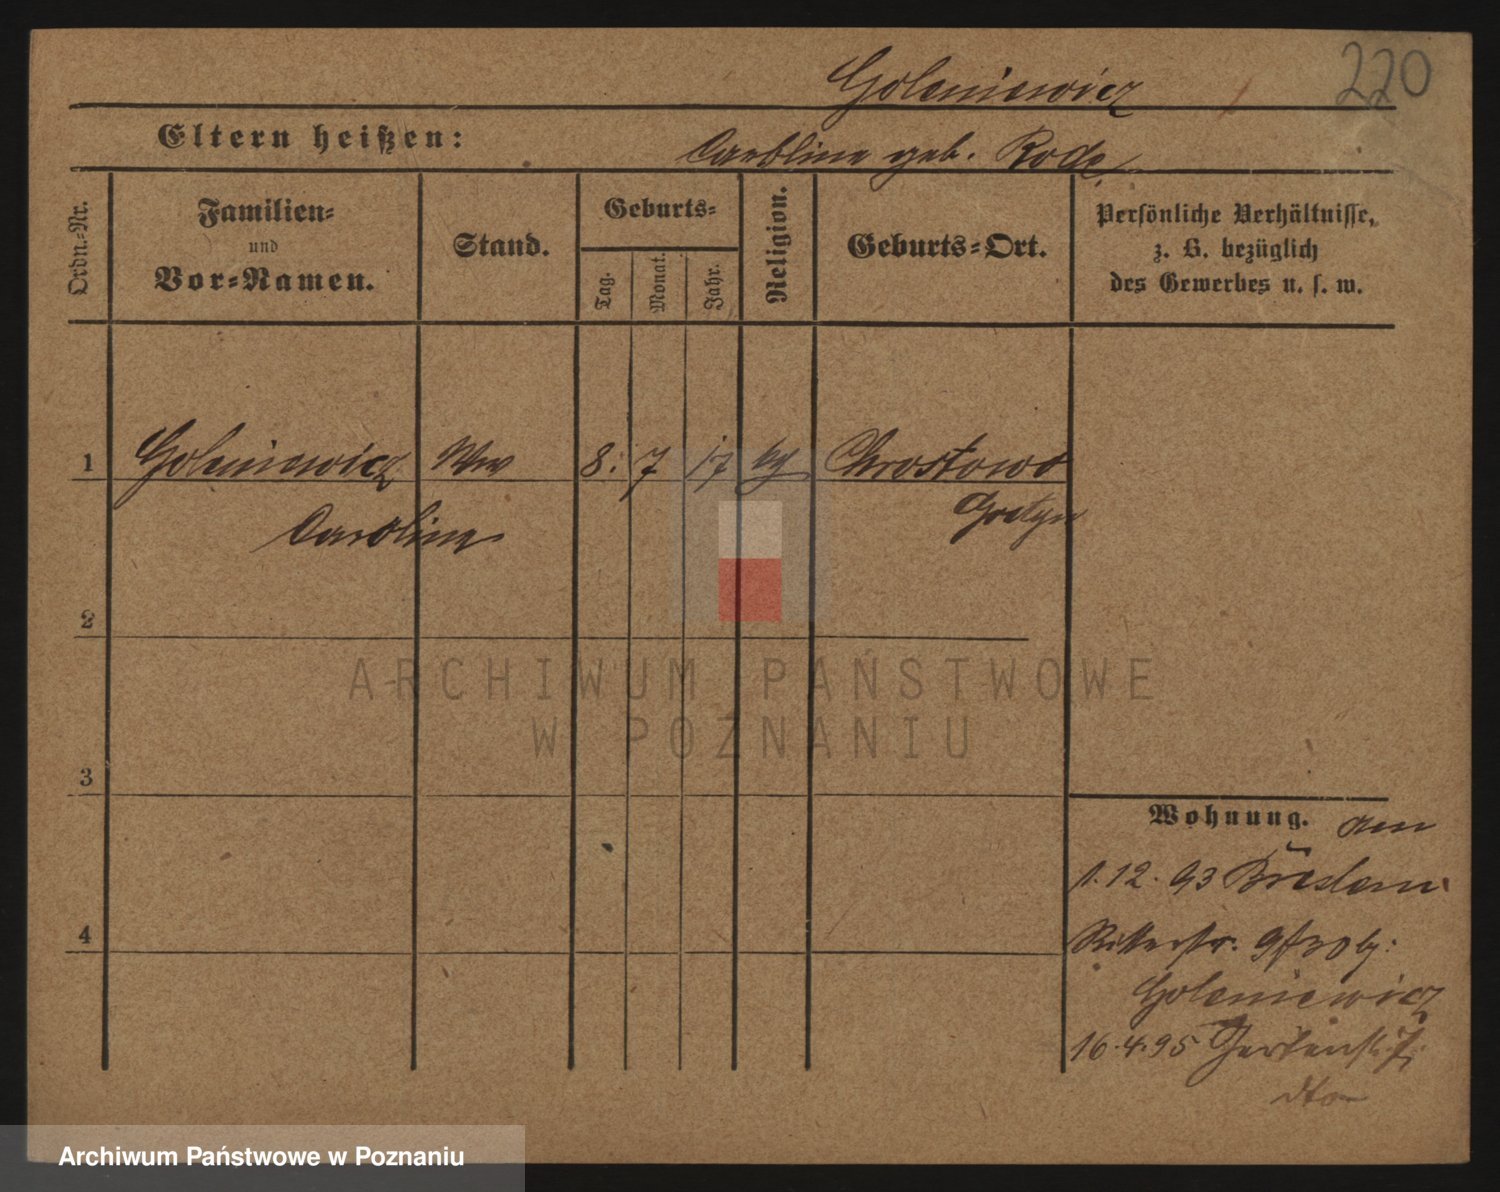 220
Goleniewicz
Eltern heißen:
Caroline geb. Rode
Ordn.-Nr.
Familien-
und
Vor-Namen.
Stand.
Geburts-
Tag.
Monat.
Jahr.
Religion.
Geburts-Ort.
Persönliche Verhältnisse,
z. B. bezüglich
des Gewerbes u. s. w.
1 Goleniewicz Ww 8. 7 17 Chrostowo
Caroline
2
3
4
Wohnung. am
1.12.93 Breslau
Ritterstr.
Goleniewicz
16.4.95 Gartenstr.
dto
ARCHIWUM PAŃSTWOWE
W POZNANIU
Archiwum Państwowe w Poznaniu